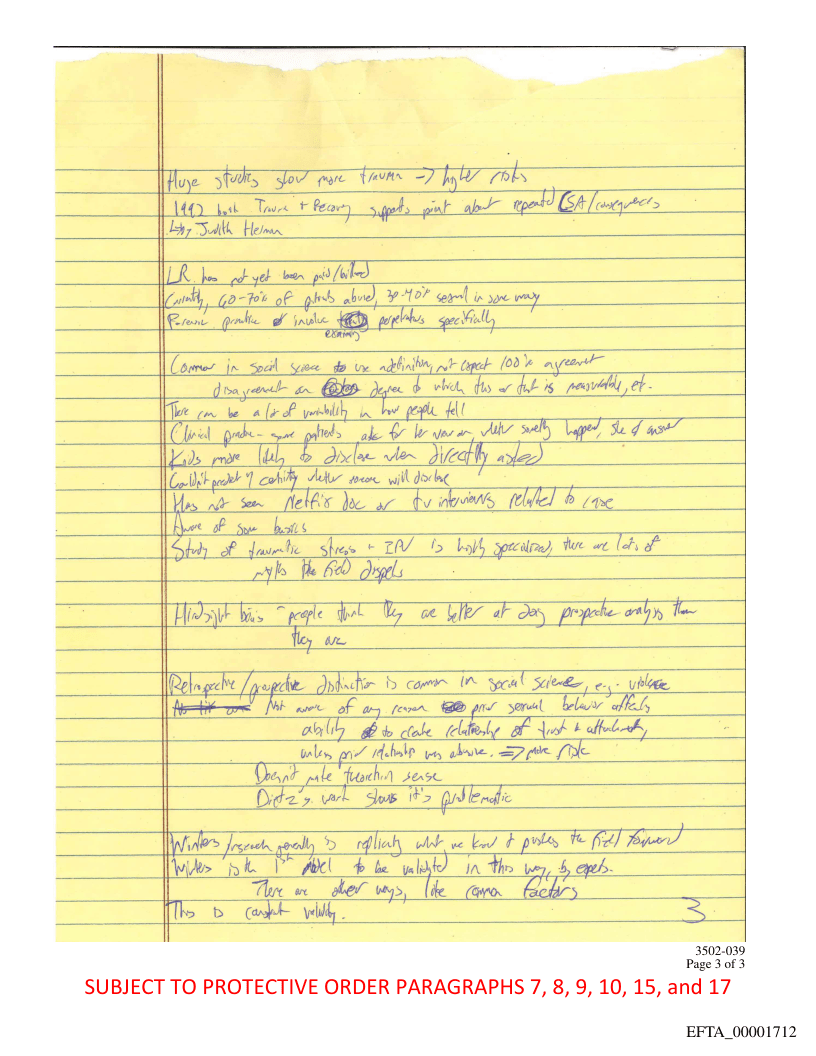 Huge studies show more trauma → higher risks
1992 book Trauma + Recovery supports point about repeated CSA/consequences
↳ by Judith Herman
LR has not yet been paid/billed
Currently, 60-70% of patients abused, 30-40% sexual in some way
Forensic practice involve perpetrators specifically
examining
Common in social science to use a definition, not expect 100% agreement
disagreement on degree to which this or that is measurable, etc.
There can be a lot of variability in how people tell
Clinical practice - some patients ask for her view on whether something happened, she answer
Kids more likely to disclose when directly asked
Couldn't predict w/ certainty whether someone will disclose
Has not seen Netflix doc or tv interviews related to case
Aware of some basics
Study of traumatic stress + IPV is highly specialized, there are lots of
myths the field dispels
Hindsight bias - people think they are better at doing prospective analysis than
they are
Retrospective/prospective distinction is common in social science, e.g. violence
Not aware of any reason prior sexual behavior affects
ability to create relationship of trust & attachment,
unless prior relationship was abusive. ⇒ more risk
Doesn't make theoretical sense
Dietz's work shows it's problematic
Winters/research generally is replicating what we know & pushes the field forward
Winters is the 1st model to be validated in this way, by experts.
There are other ways, like common factors
This is construct validity.
3
3502-039
Page 3 of 3
SUBJECT TO PROTECTIVE ORDER PARAGRAPHS 7, 8, 9, 10, 15, and 17
EFTA_00001712